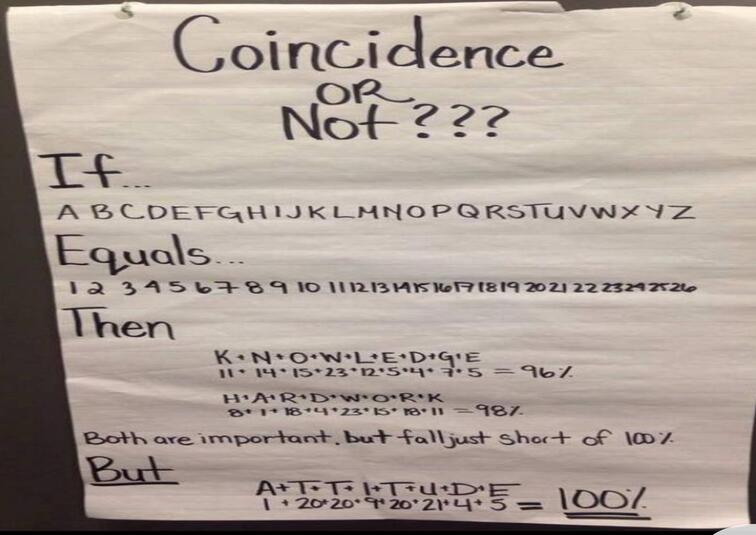 Coincidence
OR
Not???
If...
A B C D E F G H I J K L M N O P Q R S T U V W X Y Z
Equals...
1 2 3 4 5 6 7 8 9 10 11 12 13 14 15 16 17 18 19 20 21 22 23 24 25 26
Then
K+N+O+W+L+E+D+G+E
11+14+15+23+12+5+4+7+5 = 96%
H+A+R+D+W+O+R+K
8+1+18+4+23+15+18+11 = 98%
Both are important, but fall just short of 100%
But
A+T+T+I+T+U+D+E
1+20+20+9+20+21+4+5 = 100%